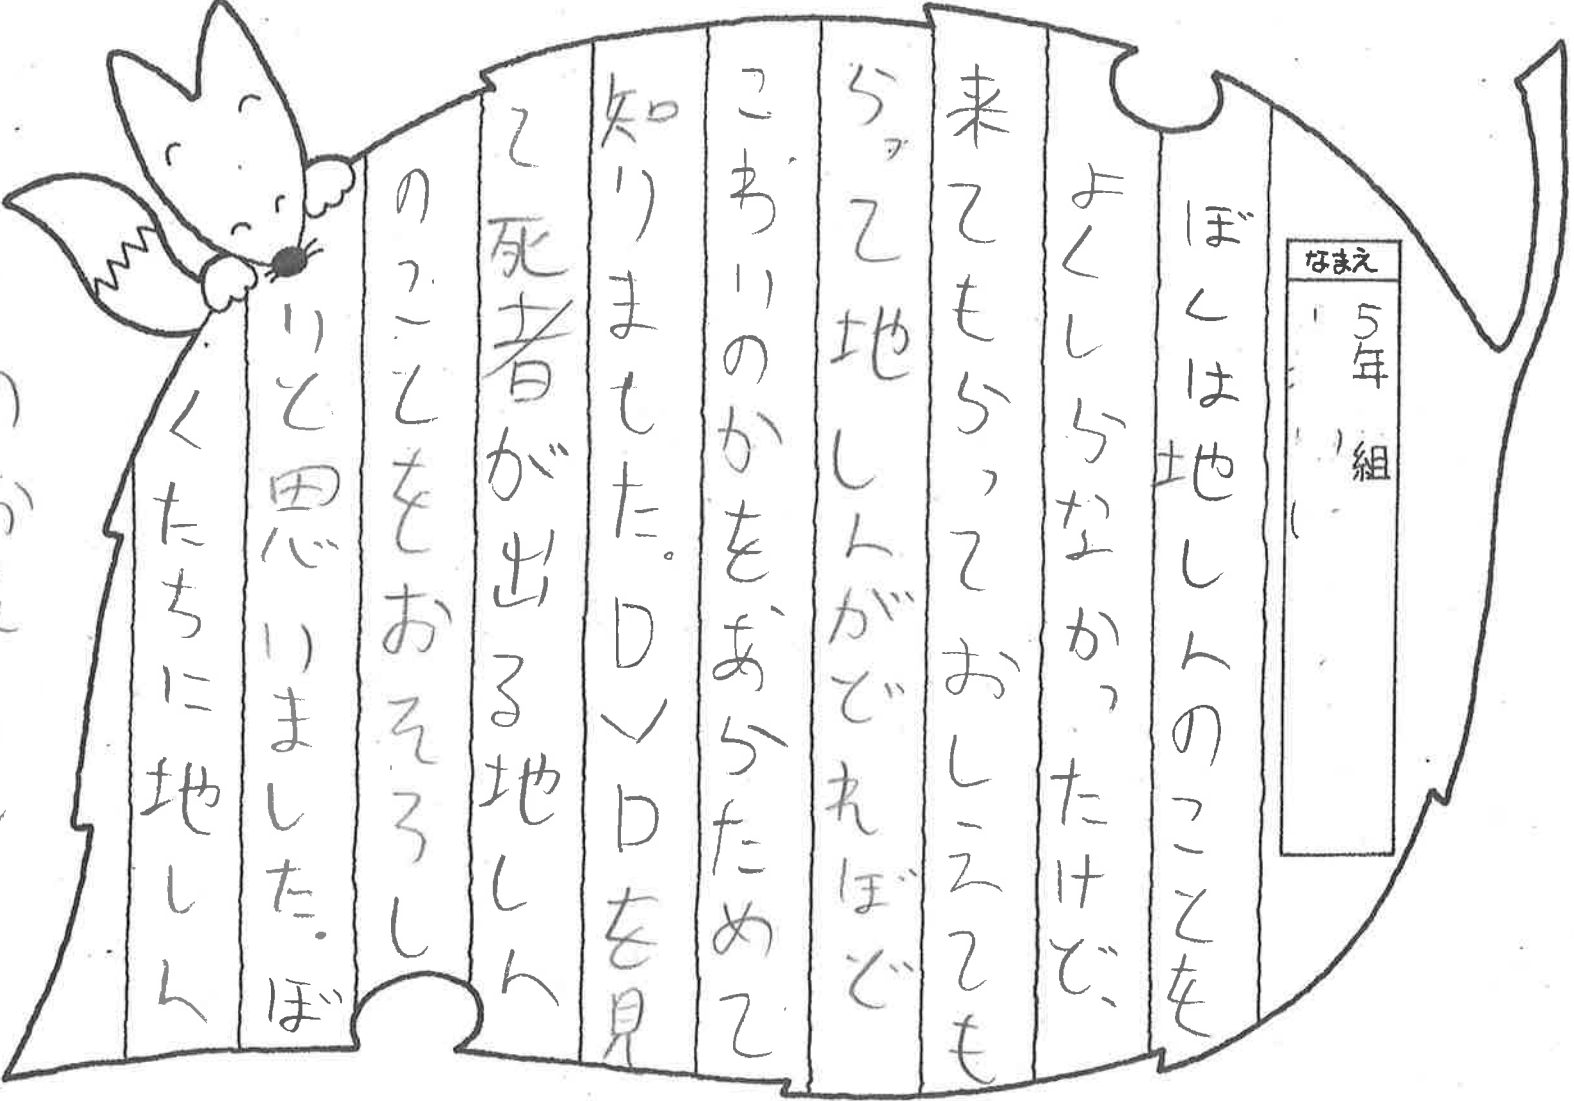 なまえ
5年 組
ぼくは地しんのことを
よくしらなかったけど、
来てもらっておしえても
らって地しんがどれほど
こわいのかをあらためて
知りました。DVDを見
て死者が出る地しん
のことをおそろし
いと思いました。ぼ
くたちに地しん